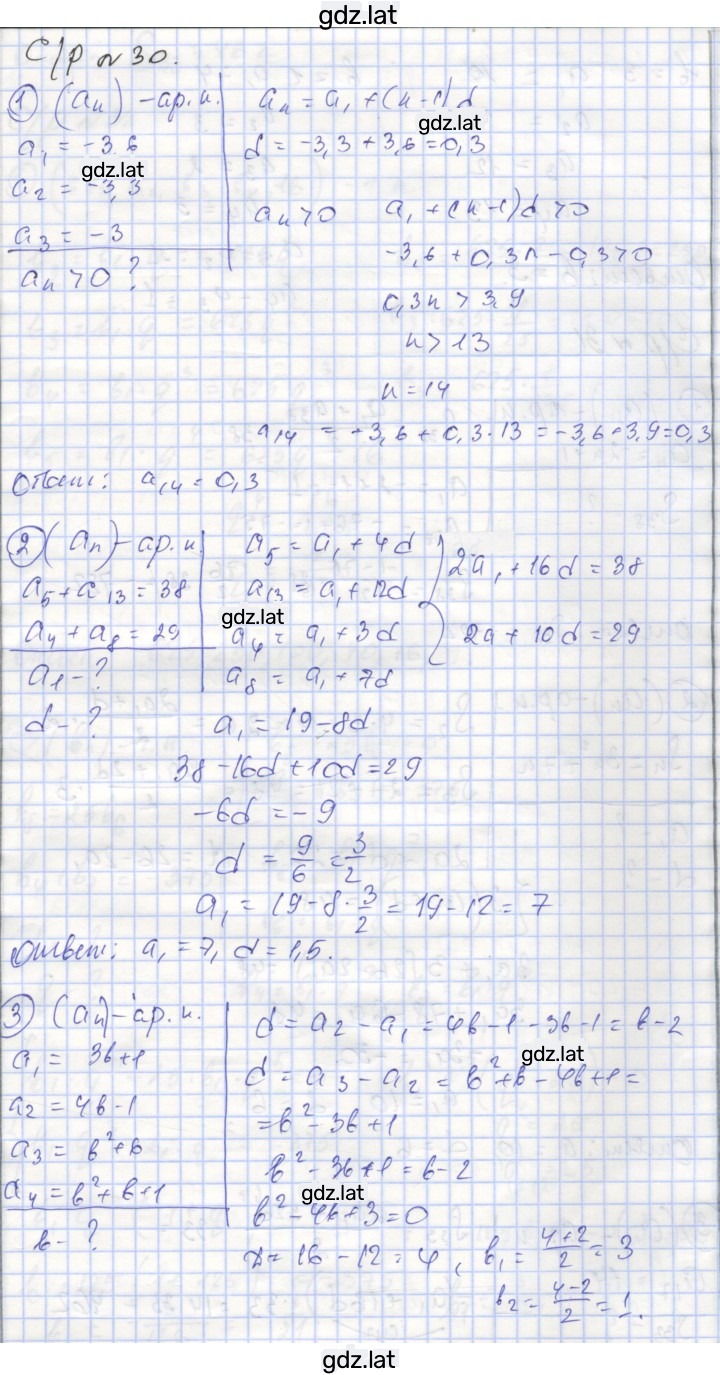 gdz.lat
С/р № 30.
① (aₙ) – ар. п.
a₁ = -3.6
a₂ = -3,3
a₃ = -3
aₙ > 0 ?
aₙ = a₁ + (n-1)d
gdz.lat
gdz.lat
d = -3,3 + 3,6 = 0,3
aₙ > 0 a₁ + (n-1)d > 0
-3,6 + 0,3n - 0,3 > 0
0,3n > 3,9
n > 13
n = 14
a₁₄ = -3,6 + 0,3·13 = -3,6+3,9=0,3
Ответ: a₁₄ = 0,3
② (aₙ) – ар. п.
a₅ + a₁₃ = 38
a₄ + a₈ = 29
a₁ - ?
d - ?
a₅ = a₁ + 4d
a₁₃ = a₁ + 12d
gdz.lat
a₄ = a₁ + 3d
a₈ = a₁ + 7d
2a₁ + 16d = 38
2a + 10d = 29
a₁ = 19 - 8d
38 - 16d + 10d = 29
-6d = -9
d = 9/6 = 3/2
a₁ = 19 - 8 · 3/2 = 19 - 12 = 7
Ответ: a₁ = 7, d = 1,5.
③ (aₙ) – ар. п.
a₁ = 3b+1
a₂ = 4b-1
a₃ = b²+b
a₄ = b²+b+1
b - ?
d = a₂ - a₁ = 4b-1-3b-1 = b-2
gdz.lat
d = a₃ - a₂ = b²+b-4b+1 =
= b² - 3b + 1
b² - 3b + 1 = b - 2
gdz.lat
b² - 4b + 3 = 0
D = 16 - 12 = 4, b₁ = (4+2)/2 = 3
b₂ = (4-2)/2 = 1.
gdz.lat